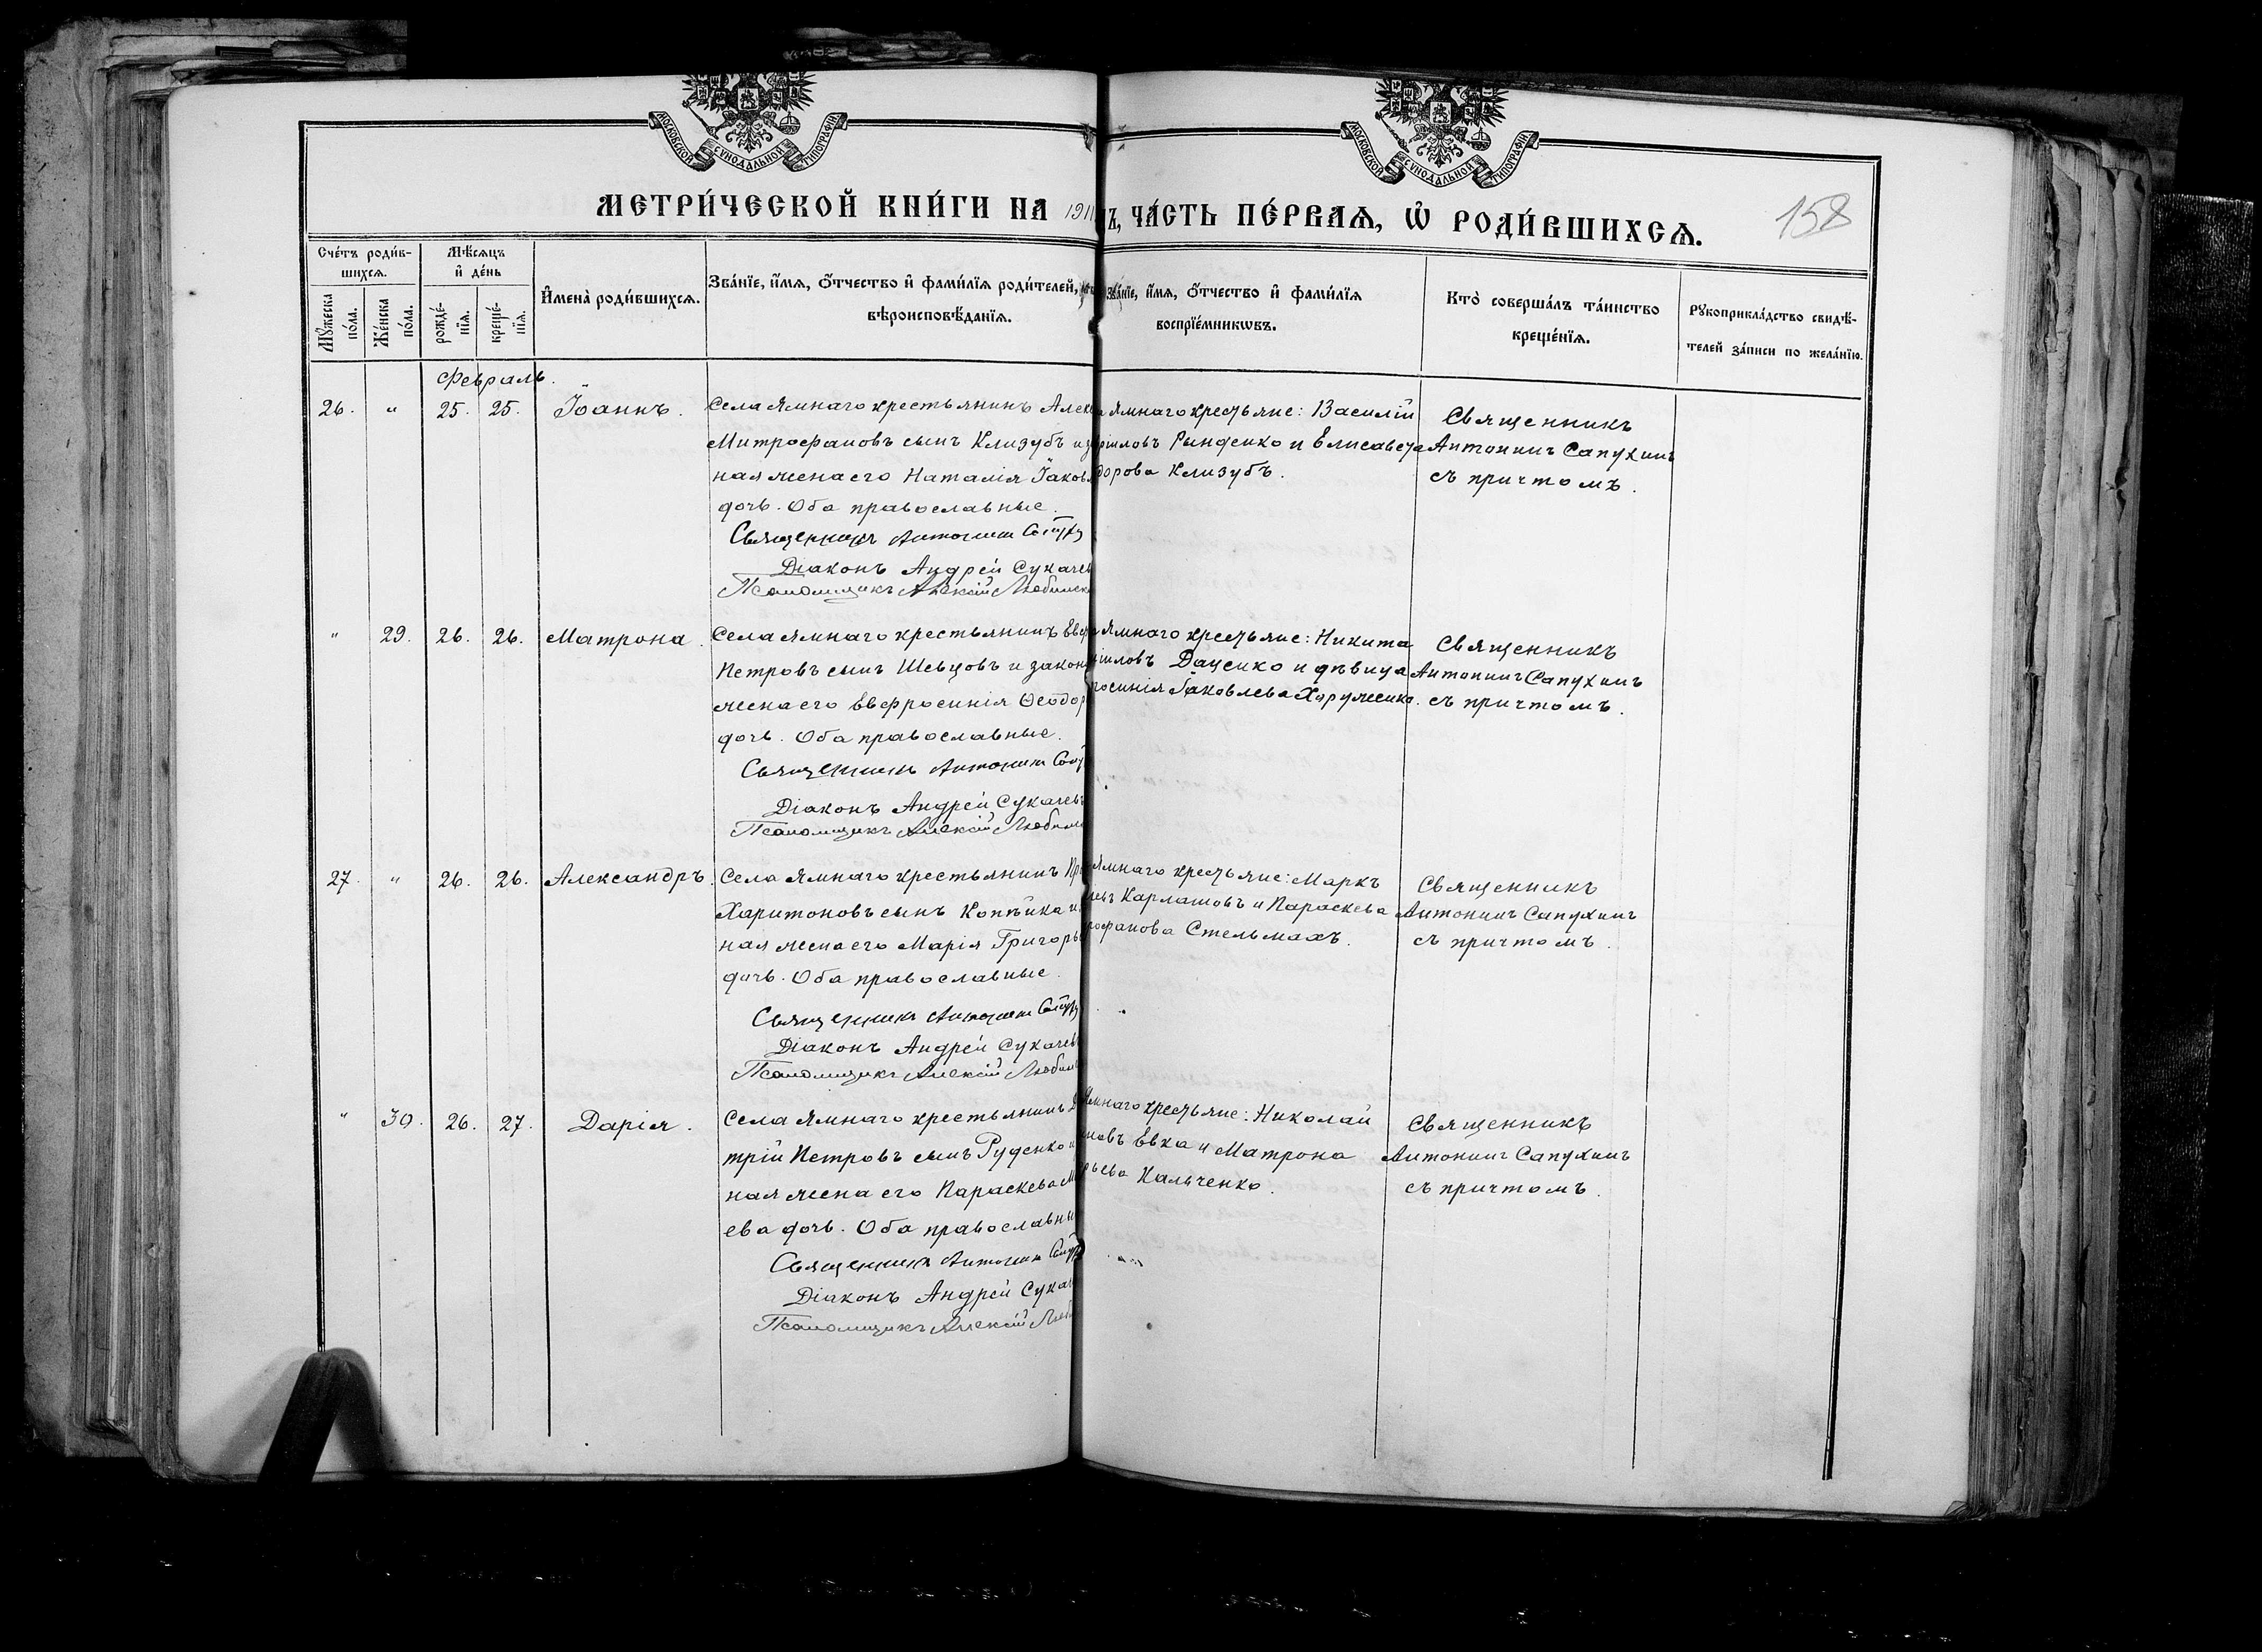 МОСКОВСКОЙ СУНОДАЛЬНОЙ ТИПОГРАФІИ
МОСКОВСКОЙ СУНОДАЛЬНОЙ ТИПОГРАФІИ
МЕТРИ́ЧЕСКОЙ КНИ́ГИ НА 1911
Ъ, ЧА́СТЬ ПЕ́РВАѦ, Ѽ РОДИ́ВШИХСѦ.
158
Сче́тъ роди́в-
шихсѧ.
Мꙋ́жеска
по́ла.
Же́нска
по́ла.
Мѣ́сѧцъ
и҆ де́нь
рожде́-
нїѧ.
креще́-
нїѧ.
И҆мена̀ роди́вшихсѧ.
Зва́нїе, и҆́мѧ, ѻ҆́тчество и҆ фами́лїѧ роди́телей,
вѣроисповѣ́данїѧ.
Зва́нїе, и҆́мѧ, ѻ҆́тчество и҆ фами́лїѧ
воспрїе́мникѡвъ.
Кто̀ соверша́лъ та́инство
креще́нїѧ.
Рꙋкоприкла́дство свидѣ́-
телей за́писи по жела́нїю.
Февраль.
26. " 25. 25. Іоаннъ.
Села Ямнаго крестьянинъ Алек
Митрофановъ сынъ Клизубъ и з
ная жена его Наталія Іаков
дочь. Оба православные.
Священникъ Антонин Сапух
Діаконъ Андрей Сукачев
Псаломщикъ Алексій Любимск
Ямнаго крестьяне: Василій
иловъ Рынденко и Елисавета
дорова Клизубъ.
Священникъ
Антонинъ Сапухинъ
съ причтомъ.
" 29. 26. 26. Матрона.
Села Ямнаго крестьянинъ Евс
Петровъ сынъ Шевцовъ и закон
жена его Евфросинія Ѳеодор
дочь. Оба православные.
Священникъ Антонин Сап
Діаконъ Андрей Сукачевъ
Псаломщикъ Алексій Любим
Ямнаго крестьяне: Никита
иловъ Даценко и дѣвица
росинія Іаковлева Харуженко.
Священникъ
Антонинъ Сапухинъ
съ причтомъ.
27. " 26. 26. Александръ.
Села Ямнаго крестьянинъ Пр
Харитоновъ сынъ Копѣйка и
ная жена его Марія Григорь
дочь. Оба православные.
Священникъ Антонин Сапух
Діаконъ Андрей Сукачев
Псаломщикъ Алексій Любим
Ямнаго крестьяне: Маркъ
евъ Карлашовъ и Параскева
рофанова Стельмахъ.
Священникъ
Антонинъ Сапухинъ
съ причтомъ.
" 30. 26. 27. Дарія.
Села Ямнаго крестьянинъ Д
трій Петровъ сынъ Руденко и
ная жена его Параскева М
ева дочь. Оба православны
Священникъ Антонин Сапух
Діаконъ Андрей Сукач
Псаломщикъ Алексій Люб
Ямнаго крестьяне: Николай
новъ Евка и Матрона
рьева Кальченко.
Священникъ
Антонинъ Сапухинъ
съ причтомъ.